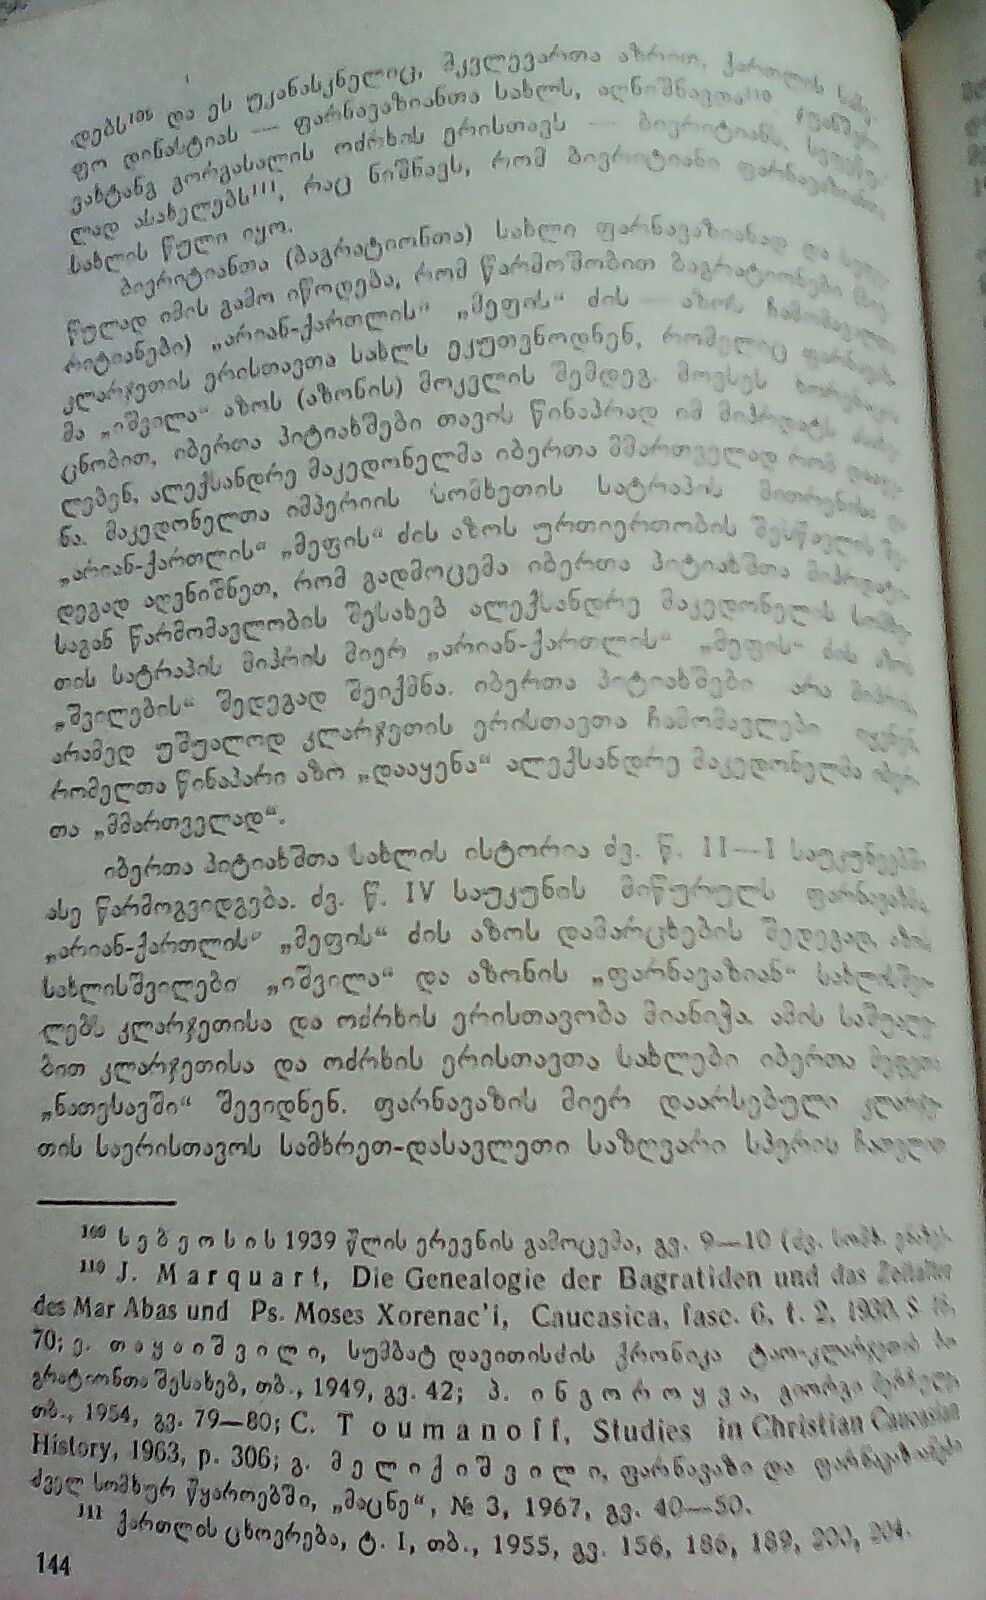 დებს¹⁰⁹ და ეს უკანასკნელიც, მკვლევართა აზრით, ქართლის
ფო დინასტიას — ფარნავაზიანთა სახლს, აღნიშნავდა¹¹⁰.
ვახტანგ გორგასალის ოძრხის ერისთავს — ბივრიტიანს,
ლად ასახელებს¹¹¹, რაც ნიშნავს, რომ ბივრიტიანი ფარნავაზიანთა
სახლის წული იყო.
ბივრიტიანთა (ბაგრატიონთა) სახლი ფარნავაზიანად და
წულად იმის გამო იწოდება, რომ წარმოშობით ბაგრატიონები
რიტიანები) „არიან-ქართლის“ „მეფის“ ძის — აზოს ჩამომავალ
კლარჯეთის ერისთავთა სახლს ეკუთვნოდნენ, რომელიც
მა „იშვილა“ აზოს (აზონის) მოკვლის შემდეგ. მოვსეს
ცნობით, იბერთა პიტიახშები თავის წინაპრად იმ მიჰრდატს
ლებენ, ალექსანდრე მაკედონელმა იბერთა მმართველად რომ
ნა. მაკედონელთა იმპერიის სომხეთის სატრაპის
„არიან-ქართლის“ „მეფის“ ძის აზოს ურთიერთობის შესწავლის შე-
დეგად აღვნიშნეთ, რომ გადმოცემა იბერთა პიტიახშთა მიჰრდატი-
საგან წარმომავლობის შესახებ ალექსანდრე მაკედონელის სომხე-
თის სატრაპის მიჰრის მიერ „არიან-ქართლის“ „მეფის“ ძის
„შვილების“ შედეგად შეიქმნა. იბერთა პიტიახშები არა
არამედ უშუალოდ კლარჯეთის ერისთავთა ჩამომავლები
რომელთა წინაპარი აზო „დააყენა“ ალექსანდრე მაკედონელმა იბერ-
თა „მმართველად“.
იბერთა პიტიახშთა სახლის ისტორია ძვ. წ. II—I საუკუნეებში
ასე წარმოგვიდგება. ძვ. წ. IV საუკუნის მიწურულს ფარნავაზმა
„არიან-ქართლის“ „მეფის“ ძის აზოს დამარცხების შედეგად,
სახლისშვილები „იშვილა“ და აზონის „ფარნავაზიან“ სახლისშვი-
ლებს კლარჯეთისა და ოძრხის ერისთავობა მიანიჭა. ამის საშუალე-
ბით კლარჯეთისა და ოძრხის ერისთავთა სახლები იბერთა მეფეთა
„ნათესავში“ შევიდნენ. ფარნავაზის მიერ დაარსებული კლარჯე-
თის საერისთავოს სამხრეთ-დასავლეთი საზღვარი სპერის ჩათვლით
¹⁰⁹ სებეოსის 1939 წლის ერევნის გამოცემა, გვ. 9—10 (ძვ. სომხ.
¹¹⁰ J. Marquart, Die Genealogie der Bagratiden und das Zeitalter
des Mar Abas und Ps. Moses Xorenac'i, Caucasica, fasc. 6, t. 2, 1930, S. 16,
70; ე. თაყაიშვილი, სუმბატ დავითისძის ქრონიკა ტაო-კლარჯეთის ბა-
გრატიონთა შესახებ, თბ., 1949, გვ. 42; პ. ინგოროყვა, გიორგი მერჩულე,
თბ., 1954, გვ. 79—80; C. Toumanoff, Studies in Christian Caucasian
History, 1963, p. 306; გ. მელიქიშვილი, ფარნავაზი და
ძველ სომხურ წყაროებში, „მაცნე“, № 3, 1967, გვ. 40—50.
¹¹¹ ქართლის ცხოვრება, ტ. I, თბ., 1955, გვ. 156, 186, 189, 200, 204.
144